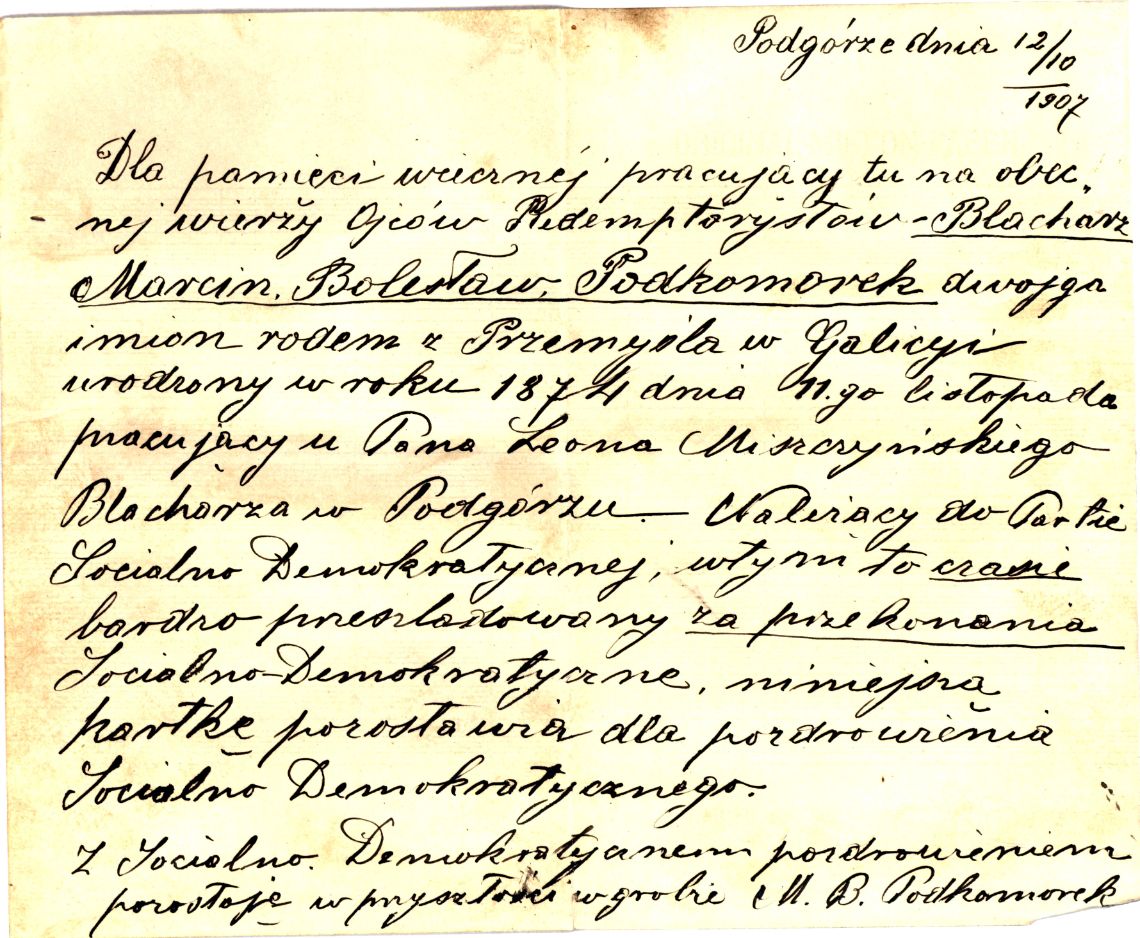 Podgórze dnia 12/10
1907
Dla pamięci wiecznéj pracujacy tu na obec„
- nej wierzy Ojców Redemptorystów - Blacharz
Marcin, Bolesław, Podkomorek dwojga
imion rodem z Przemyśla w Galicyi
urodzony w roku 1874 dnia 11.go listopada
pracujacy u Pana Leona Miszczyńskiego
Blacharza w Podgórzu. — Nalezacy do Partie
Socialno Demokratycznej, wtymi to czasie
bardzo przesladowany za przekonania
Socialno-Demokratyczne, niniejsza
kartkę pozostawia dla pozdrowienia
Socialno Demokratycznego.
Z Socialno. Demokratycznem pozdrowieniem
pozostaję w przyszłości w grobie M. B. Podkomorek